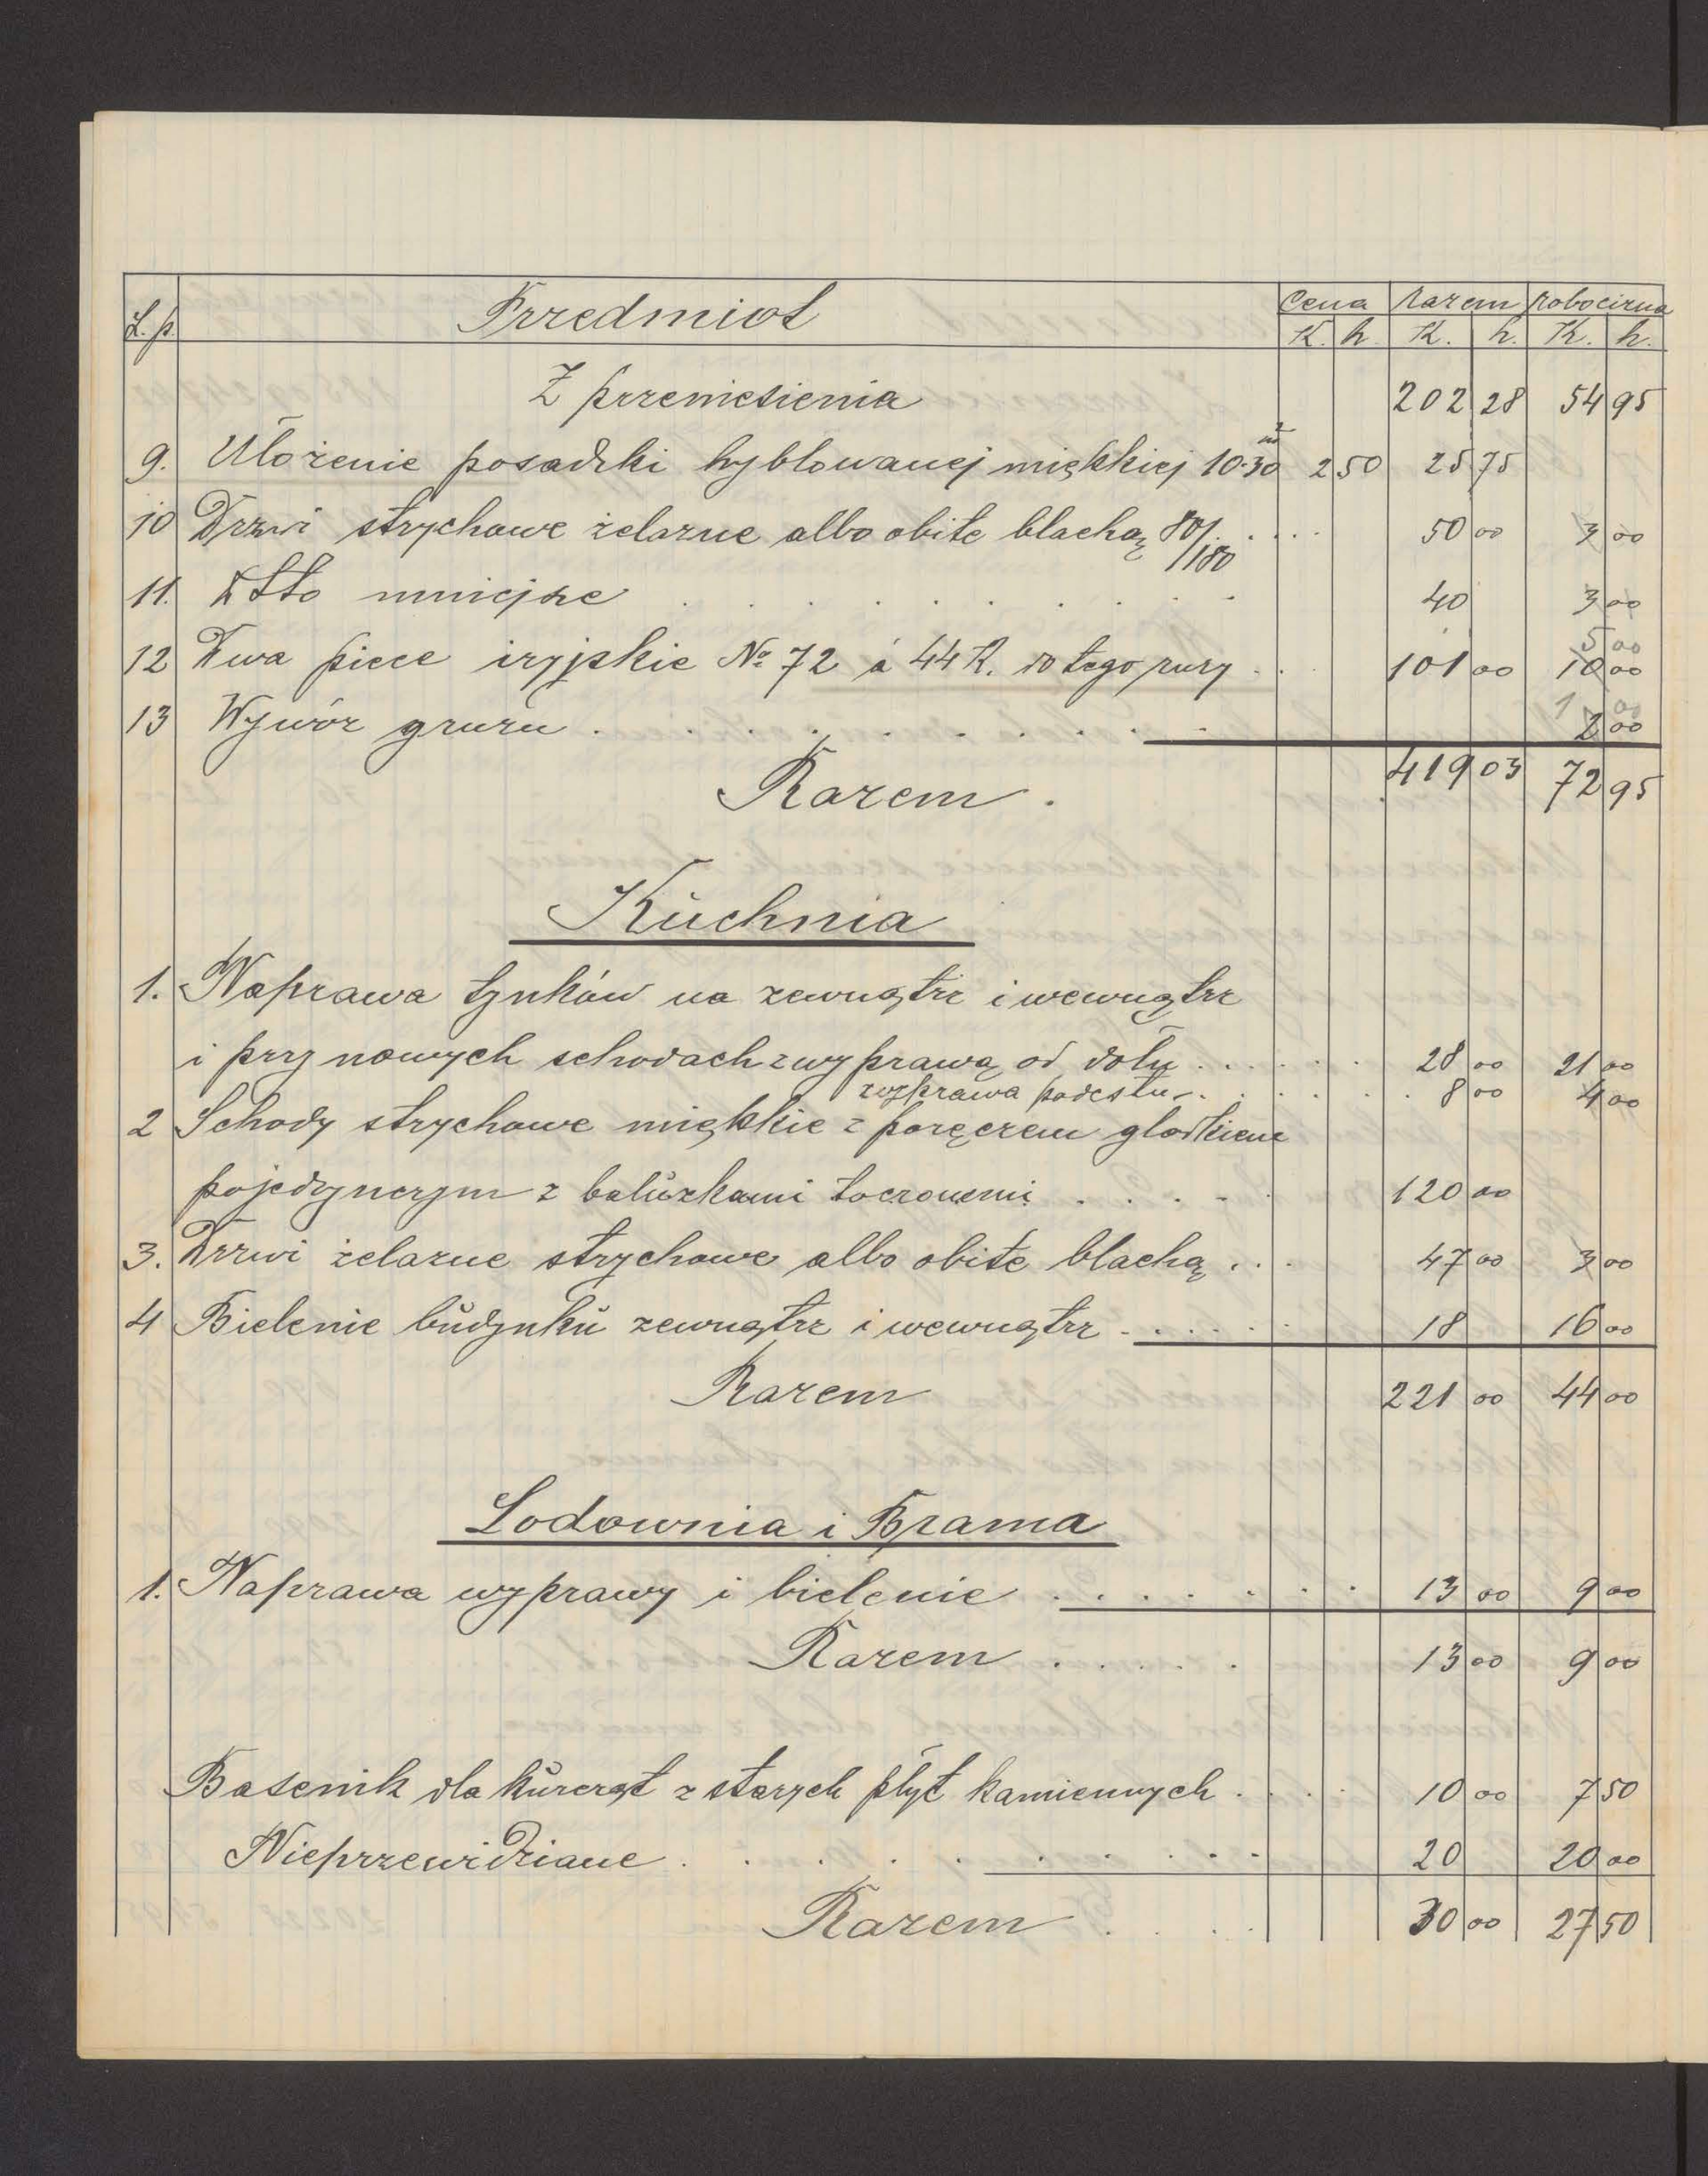 L.p. Przedmiot Cena Razem Robocizna
K. h. K. h. K. h.
Z przeniesienia 202 28 54 95
9. Ułożenie posadzki hyblowanej miękkiej 10·30 m² 2 50 25 75
10 Drzwi strychowe żelazne albo obite blachą 80/180 .... 50 00 3 00
11. Dtto mniejsze . . . . . . . . . . 40 3 00
5 00
12 Dwa piece iryjskie No 72 á 44 K. do tego rury . . 101 00 10 00
1 00
13 Wywóz gruzu . . . . . . . . . . 2 00
Razem . 419 03 72 95
Kuchnia
1. Naprawa tynków na zewnątrz i wewnątrz
i przy nowych schodach z wyprawą od dołu . . . . . . 28 00 21 00
wyprawa podestu . . . . . . 8 00 4 00
2 Schody strychowe miękkie z poręczem gładkiem
pojedynczym z balūzkami toczonemi . . . . . 120 00
3. Drzwi żelazne strychowe albo obite blachą . . . 47 00 3 00
4 Bielenie budynku zewnątrz i wewnątrz . . . . . . 18 16 00
Razem 221 00 44 00
Lodownia i Brama
1. Naprawa wyprawy i bielenie . . . . . . . 13 00 9 00
Razem . . . . . 13 00 9 00
Basenik dla kurcząt z starych płyt kamiennych . . . 10 00 7 50
Nieprzewidziane . . . . . . . . . . 20 20 00
Razem . . . 30 00 27 50